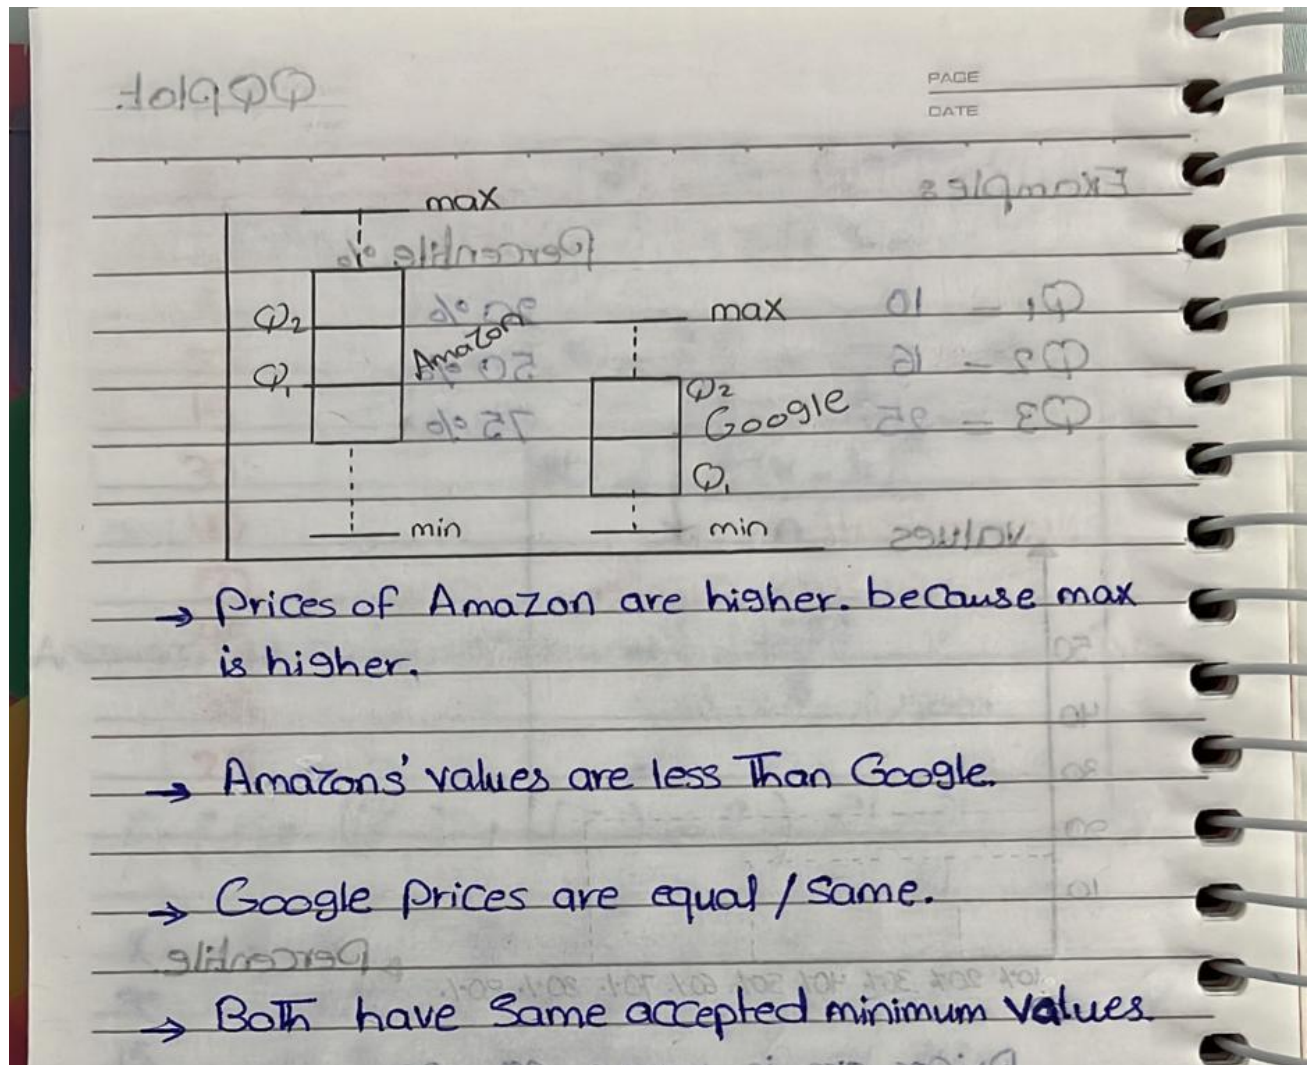 PAGE
DATE
max
Q2
Amazon
max
Q1
Q2
Google
Q1
min
min
→ Prices of Amazon are higher. because max
is higher.
→ Amazons' values are less Than Google.
→ Google Prices are equal / Same.
→ Both have Same accepted minimum values